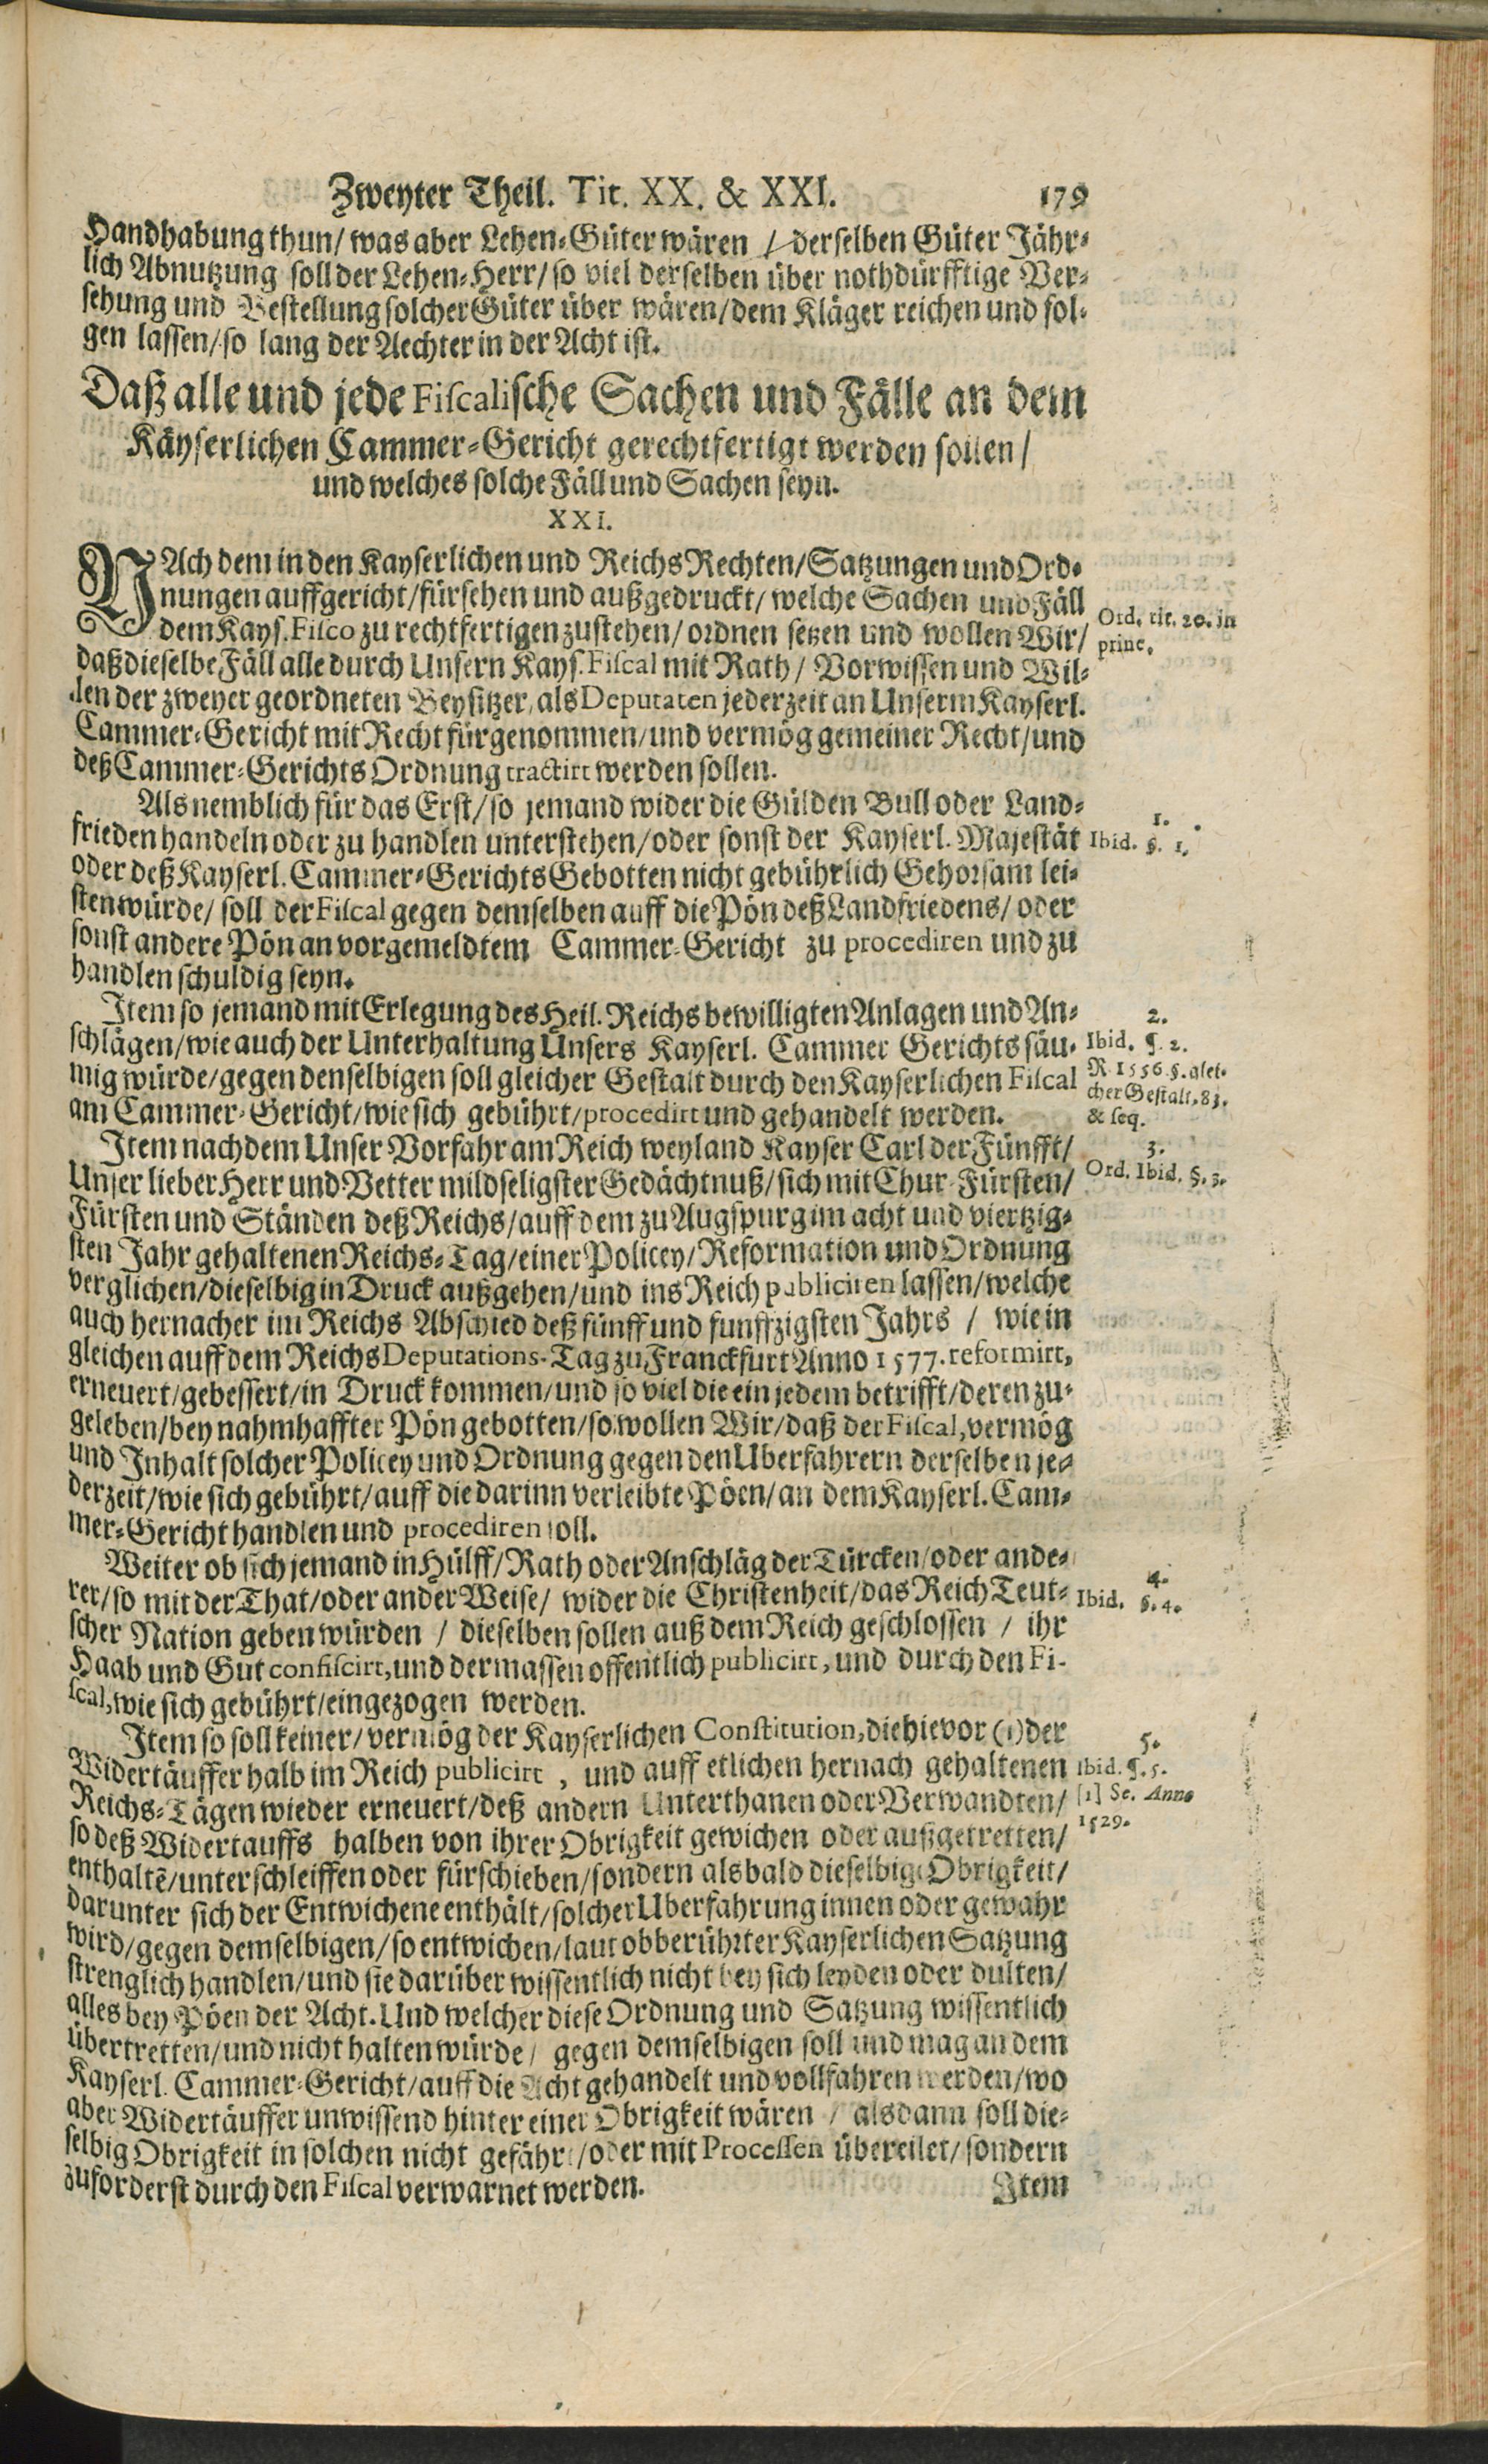 Zweyter Theil. Tit. XX. & XXI. 179
Handhabung thun/ was aber Lehen-Güter wären / derselben Güter Jähr-
lich Abnutzung soll der Lehen-Herr/ so viel derselben über nothdürfftige Ver-
sehung und Bestellung solcher Güter über wären/ dem Kläger reichen und fol-
gen lassen/ so lang der Aechter in der Acht ist.
Daß alle und jede Fiscalische Sachen und Fälle an dem
Käyserlichen Cammer-Gericht gerechtfertigt werden sollen/
und welches solche Fäll und Sachen seyn.
XXI.
NAch dem in den Kayserlichen und Reichs Rechten/ Satzungen und Ord-
nungen auffgericht/ fürsehen und außgedruckt/ welche Sachen und Fäll
dem Kays. Fisco zu rechtfertigen zustehen/ ordnen setzen und wollen Wir/
Ord. tit. 20. in
princ.
daß dieselbe Fäll alle durch Unsern Kays. Fiscal mit Rath/ Vorwissen und Wil-
len der zweyer geordneten Beysitzer, als Deputaten jederzeit an Unserm Kayserl.
Cammer-Gericht mit Recht fürgenommen/ und vermög gemeiner Recht/ und
deß Cammer-Gerichts Ordnung tractirt werden sollen.
Als nemblich für das Erst/ so jemand wider die Gülden Bull oder Land-
frieden handeln oder zu handlen unterstehen/ oder sonst der Kayserl. Majestät
1.
Ibid. §. 1.
oder deß Kayserl. Cammer-Gerichts Gebotten nicht gebührlich Gehorsam lei-
sten würde/ soll der Fiscal gegen demselben auff die Pön deß Landfriedens/ oder
sonst andere Pön an vorgemeldtem Cammer-Gericht zu procediren und zu
handlen schuldig seyn.
Item so jemand mit Erlegung des Heil. Reichs bewilligten Anlagen und An-
schlägen/ wie auch der Unterhaltung Unsers Kayserl. Cammer Gerichts säu-
mig würde/ gegen denselbigen soll gleicher Gestalt durch den Kayserlichen Fiscal
am Cammer-Gericht/ wie sich gebührt/ procedirt und gehandelt werden.
2.
Ibid. §. 2.
R. 1556. §. glei-
cher Gestalt. 83.
& seq.
Item nach dem Unser Vorfahr am Reich weyland Kayser Carl der Fünfft/
Unser lieber Herr und Vetter mildseligster Gedächtnuß/ sich mit Chur-Fürsten/
3.
Ord. Ibid. §. 3.
Fürsten und Ständen deß Reichs/ auff dem zu Augspurg im acht und viertzig-
sten Jahr gehaltenen Reichs-Tag/ einer Policey/ Reformation und Ordnung
verglichen/ dieselbig in Druck außgehen/ und ins Reich publiciren lassen/ welche
auch hernacher im Reichs Abschied deß fünff und funffzigsten Jahrs / wie in
gleichen auff dem Reichs Deputations-Tag zu Franckfurt Anno 1577. reformirt,
erneuert/ gebessert/ in Druck kommen/ und so viel die ein jedem betrifft/ deren zu-
geleben/ bey nahmhaffter Pön gebotten/ so wollen Wir/ daß der Fiscal, vermög
und Inhalt solcher Policey und Ordnung gegen den Uberfahrern derselben je-
derzeit/ wie sich gebührt/ auff die darinn verleibte Pöen/ an dem Kayserl. Cam-
mer-Gericht handlen und procediren soll.
Weiter ob sich jemand in Hülff/ Rath oder Anschläg der Türcken/ oder ande-
rer/ so mit der That/ oder ander Weise/ wider die Christenheit/ das Reich Teut-
4.
Ibid. §. 4.
scher Nation geben würden / dieselben sollen auß dem Reich geschlossen / ihr
Haab und Gut confiscirt, und dermassen offentlich publicirt, und durch den Fi-
scal, wie sich gebührt/ eingezogen werden.
Item so soll keiner/ vermög der Kayserlichen Constitution, die hievor (1) der
Widertäuffer halb im Reich publicirt , und auff etlichen hernach gehaltenen
Reichs-Tägen wieder erneuert/ deß andern Unterthanen oder Verwandten/
so deß Widertauffs halben von ihrer Obrigkeit gewichen oder außgetretten/
5.
Ibid. §. 5.
[1] Sc. Anno
1529.
enthaltē/ unterschleiffen oder fürschieben/ sondern alsbald dieselbige Obrigkeit/
darunter sich der Entwichene enthält/ solcher Uberfahrung innen oder gewahr
wird/ gegen demselbigen/ so entwichen/ laut obberührter Kayserlichen Satzung
strenglich handlen/ und sie darüber wissentlich nicht bey sich leyden oder dulten/
alles bey Pöen der Acht. Und welcher diese Ordnung und Satzung wissentlich
übertretten/ und nicht halten würde/ gegen demselbigen soll und mag an dem
Kayserl. Cammer-Gericht/ auff die Acht gehandelt und vollfahren werden/ wo
aber Widertäuffer unwissend hinter einer Obrigkeit wären / alsdann soll die-
selbig Obrigkeit in solchen nicht gefährt/ oder mit Processen übereilet/ sondern
zuforderst durch den Fiscal verwarnet werden.
Item